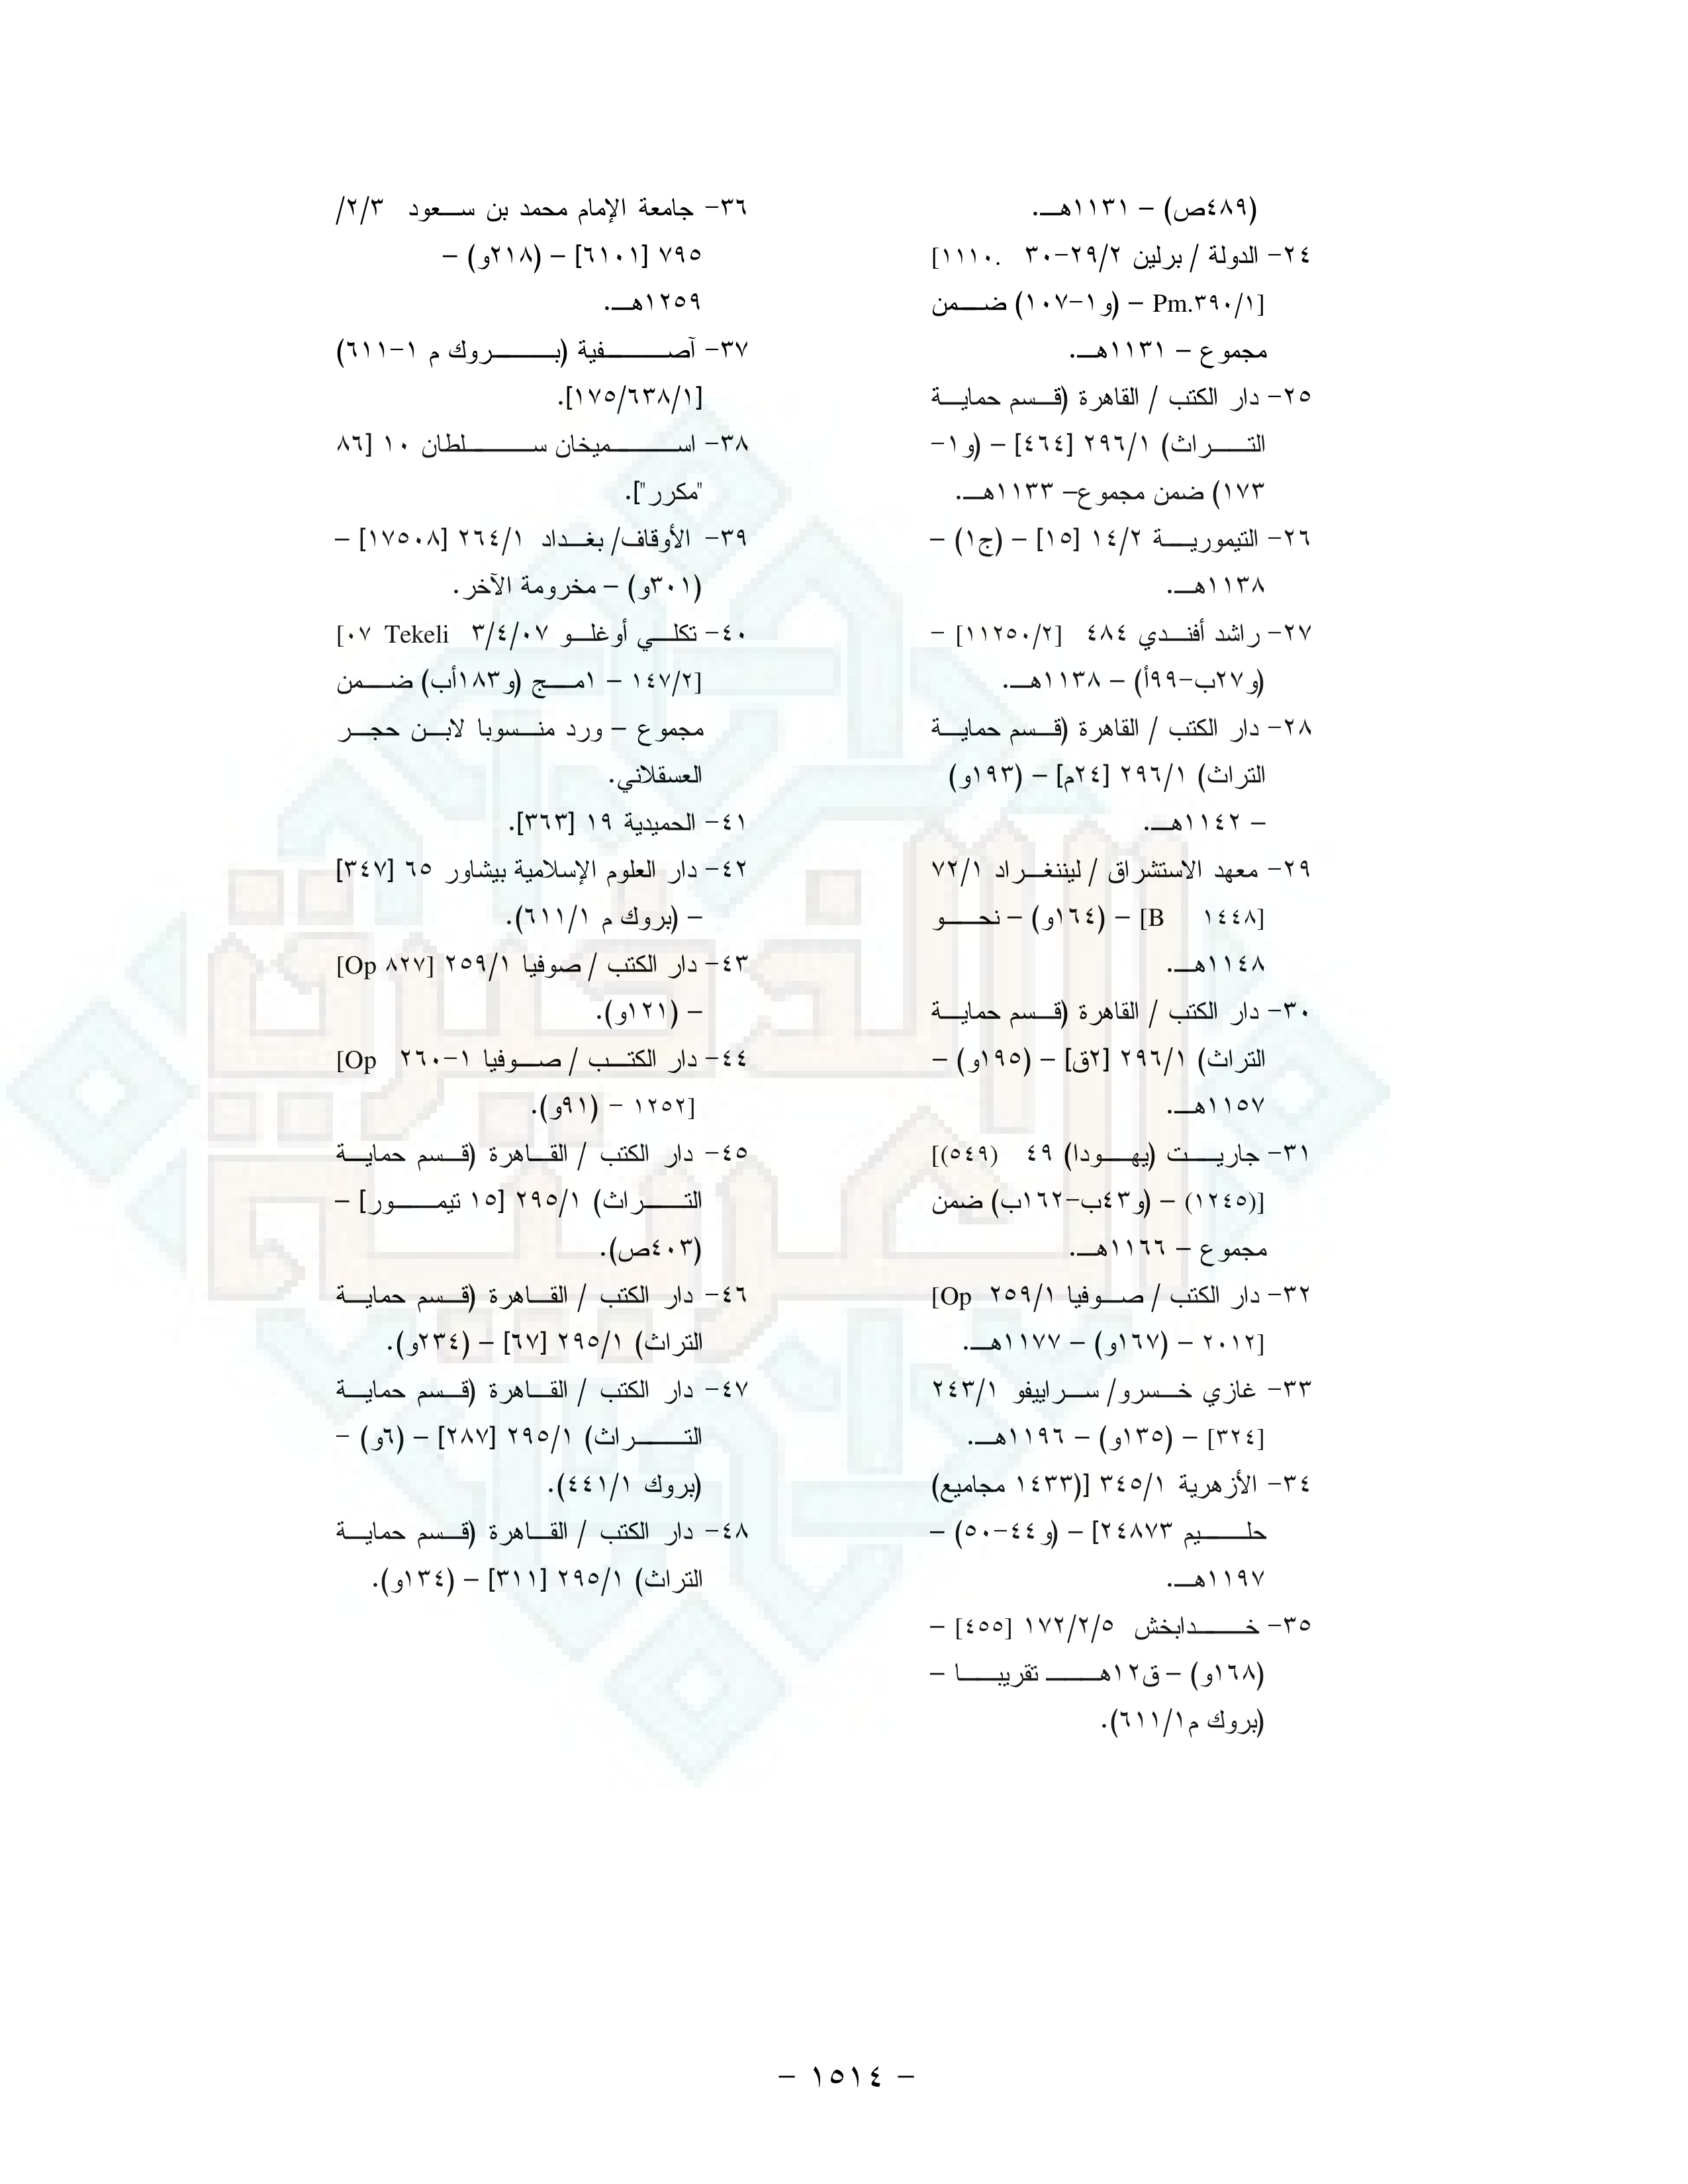 (٤٨٩ص) – ١١٣١هـ.
٢٤- الدولة / برلين ٢٩/٢-٣٠ [١١١٠.
Pm.٣٩٠/١] – (و١-١٠٧) ضمن
مجموع – ١١٣١هـ.
٢٥- دار الكتب / القاهرة (قسم حماية
التراث) ٢٩٦/١ [٤٦٤] – (و١-
١٧٣) ضمن مجموع– ١١٣٣هـ.
٢٦- التيمورية ١٤/٢ [١٥] – (ج١) –
١١٣٨هـ.
٢٧- راشد أفندي ٤٨٤ [١١٢٥٠/٢] –
(و٢٧ب-٩٩أ) – ١١٣٨هـ.
٢٨- دار الكتب / القاهرة (قسم حماية
التراث) ٢٩٦/١ [٢٤م] – (١٩٣و)
– ١١٤٢هـ.
٢٩- معهد الاستشراق / ليننغراد ٧٢/١
[B ١٤٤٨] – (١٦٤و) – نحو
١١٤٨هـ.
٣٠- دار الكتب / القاهرة (قسم حماية
التراث) ٢٩٦/١ [٢ق] – (١٩٥و) –
١١٥٧هـ.
٣١- جاريت (يهودا) ٤٩ [(٥٤٩)
(١٢٤٥)] – (و٤٣ب-١٦٢ب) ضمن
مجموع – ١١٦٦هـ.
٣٢- دار الكتب / صوفيا ٢٥٩/١ [Op
٢٠١٢] – (١٦٧و) – ١١٧٧هـ.
٣٣- غازي خسرو/ سراييفو ٢٤٣/١
[٣٢٤] – (١٣٥و) – ١١٩٦هـ.
٣٤- الأزهرية ٣٤٥/١ [(١٤٣٣ مجاميع)
حليم ٢٤٨٧٣] – (و٤٤-٥٠) –
١١٩٧هـ.
٣٥- خدابخش ١٧٢/٢/٥ [٤٥٥] –
(١٦٨و) – ق١٢هـ تقريبا –
(بروك م٦١١/١).
٣٦- جامعة الإمام محمد بن سعود ٢/٣/
٧٩٥ [٦١٠١] – (٢١٨و) –
١٢٥٩هـ.
٣٧- آصفية (بروك م ١-٦١١)
[١٧٥/٦٣٨/١].
٣٨- اسميخان سلطان ١٠ [٨٦
"مكرر"].
٣٩- الأوقاف/ بغداد ٢٦٤/١ [١٧٥٠٨] –
(٣٠١و) – مخرومة الآخر.
٤٠- تكلي أوغلو ٣/٤/٠٧ [٠٧ Tekeli
١٤٧/٢] – ١مج (و١٨٣أب) ضمن
مجموع – ورد منسوبا لابن حجر
العسقلاني.
٤١- الحميدية ١٩ [٣٦٣].
٤٢- دار العلوم الإسلامية بيشاور ٦٥ [٣٤٧]
– (بروك م ٦١١/١).
٤٣- دار الكتب / صوفيا ٢٥٩/١ [Op ٨٢٧]
– (١٢١و).
٤٤- دار الكتب / صوفيا ١-٢٦٠ [Op
١٢٥٢] – (٩١و).
٤٥- دار الكتب / القاهرة (قسم حماية
التراث) ٢٩٥/١ [١٥ تيمور] –
(٤٠٣ص).
٤٦- دار الكتب / القاهرة (قسم حماية
التراث) ٢٩٥/١ [٦٧] – (٢٣٤و).
٤٧- دار الكتب / القاهرة (قسم حماية
التراث) ٢٩٥/١ [٢٨٧] – (٦و) –
(بروك ٤٤١/١).
٤٨- دار الكتب / القاهرة (قسم حماية
التراث) ٢٩٥/١ [٣١١] – (١٣٤و).
– ١٥١٤ –